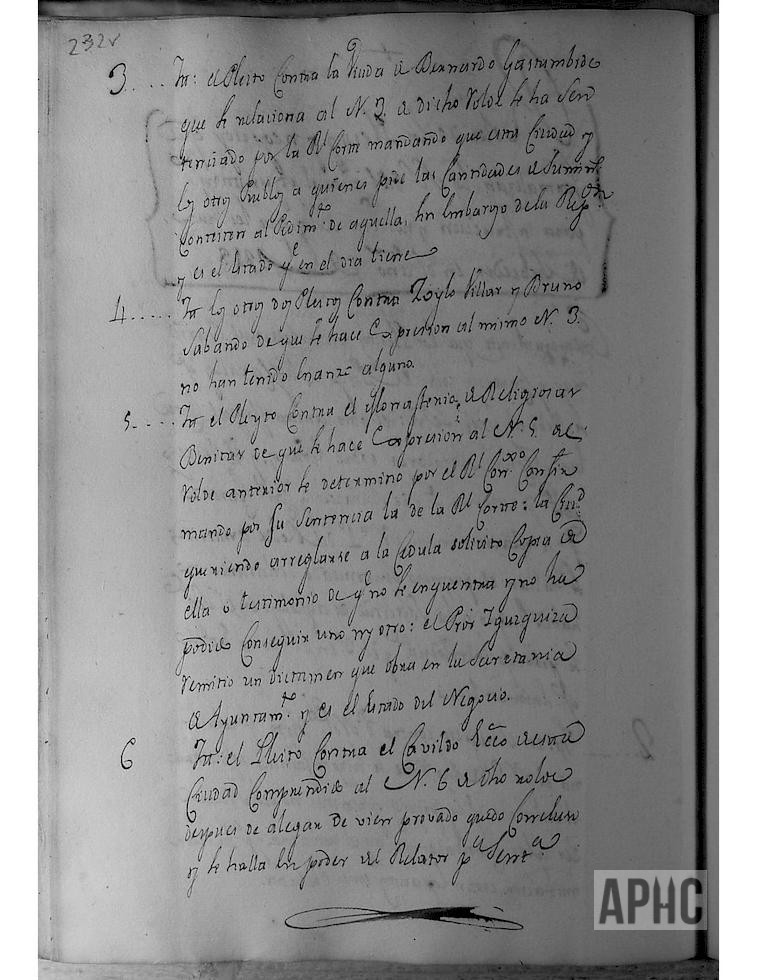 232v
3.... It: el Pleito Contra la Viuda de Bernardo Gastumbide
que se relaciona al N. 2. de dicho Volde se ha Sen
tenciado por la Rl Corte mandando que esta Ciudad y
los otros Pueblos a quienes pide las Cantidades de
Contesten al Pedimto de aquella, sin Embargo de la
y es el Estado qe en el dia tiene
4..... It los otros dos Pleitos Contra Zoylo Villar y Bruno
Sabando de que se hace Expresion al mismo N. 3.
no han tenido abanze alguno.
5.... It el Pleyto Contra el Monasterio, de Religiosas
Benitas de que se hace Expresion al N. 5. del
Volde anterior se determino por el Rl Consxo Confir
mando por su Sentencia la de la Rl Corte: la Ciud
queriendo arreglarse a la Cedula solicito Copia de
ella o testimonio de qe no se enquentra y no ha
podido Conseguir uno ny otro: el Pror Yguzquiza
remitio un dictamen que obra en la Secretaria
de Ayuntamto y es el Estado del Negocio.
6 It: el Pleito Contra el Cavildo Ecco de esta
Ciudad Comprendido al N. 6 de dho rolde
despues de alegar de vien provado quedo Concluso
y se halla en poder del Relator pa Senta
APHC